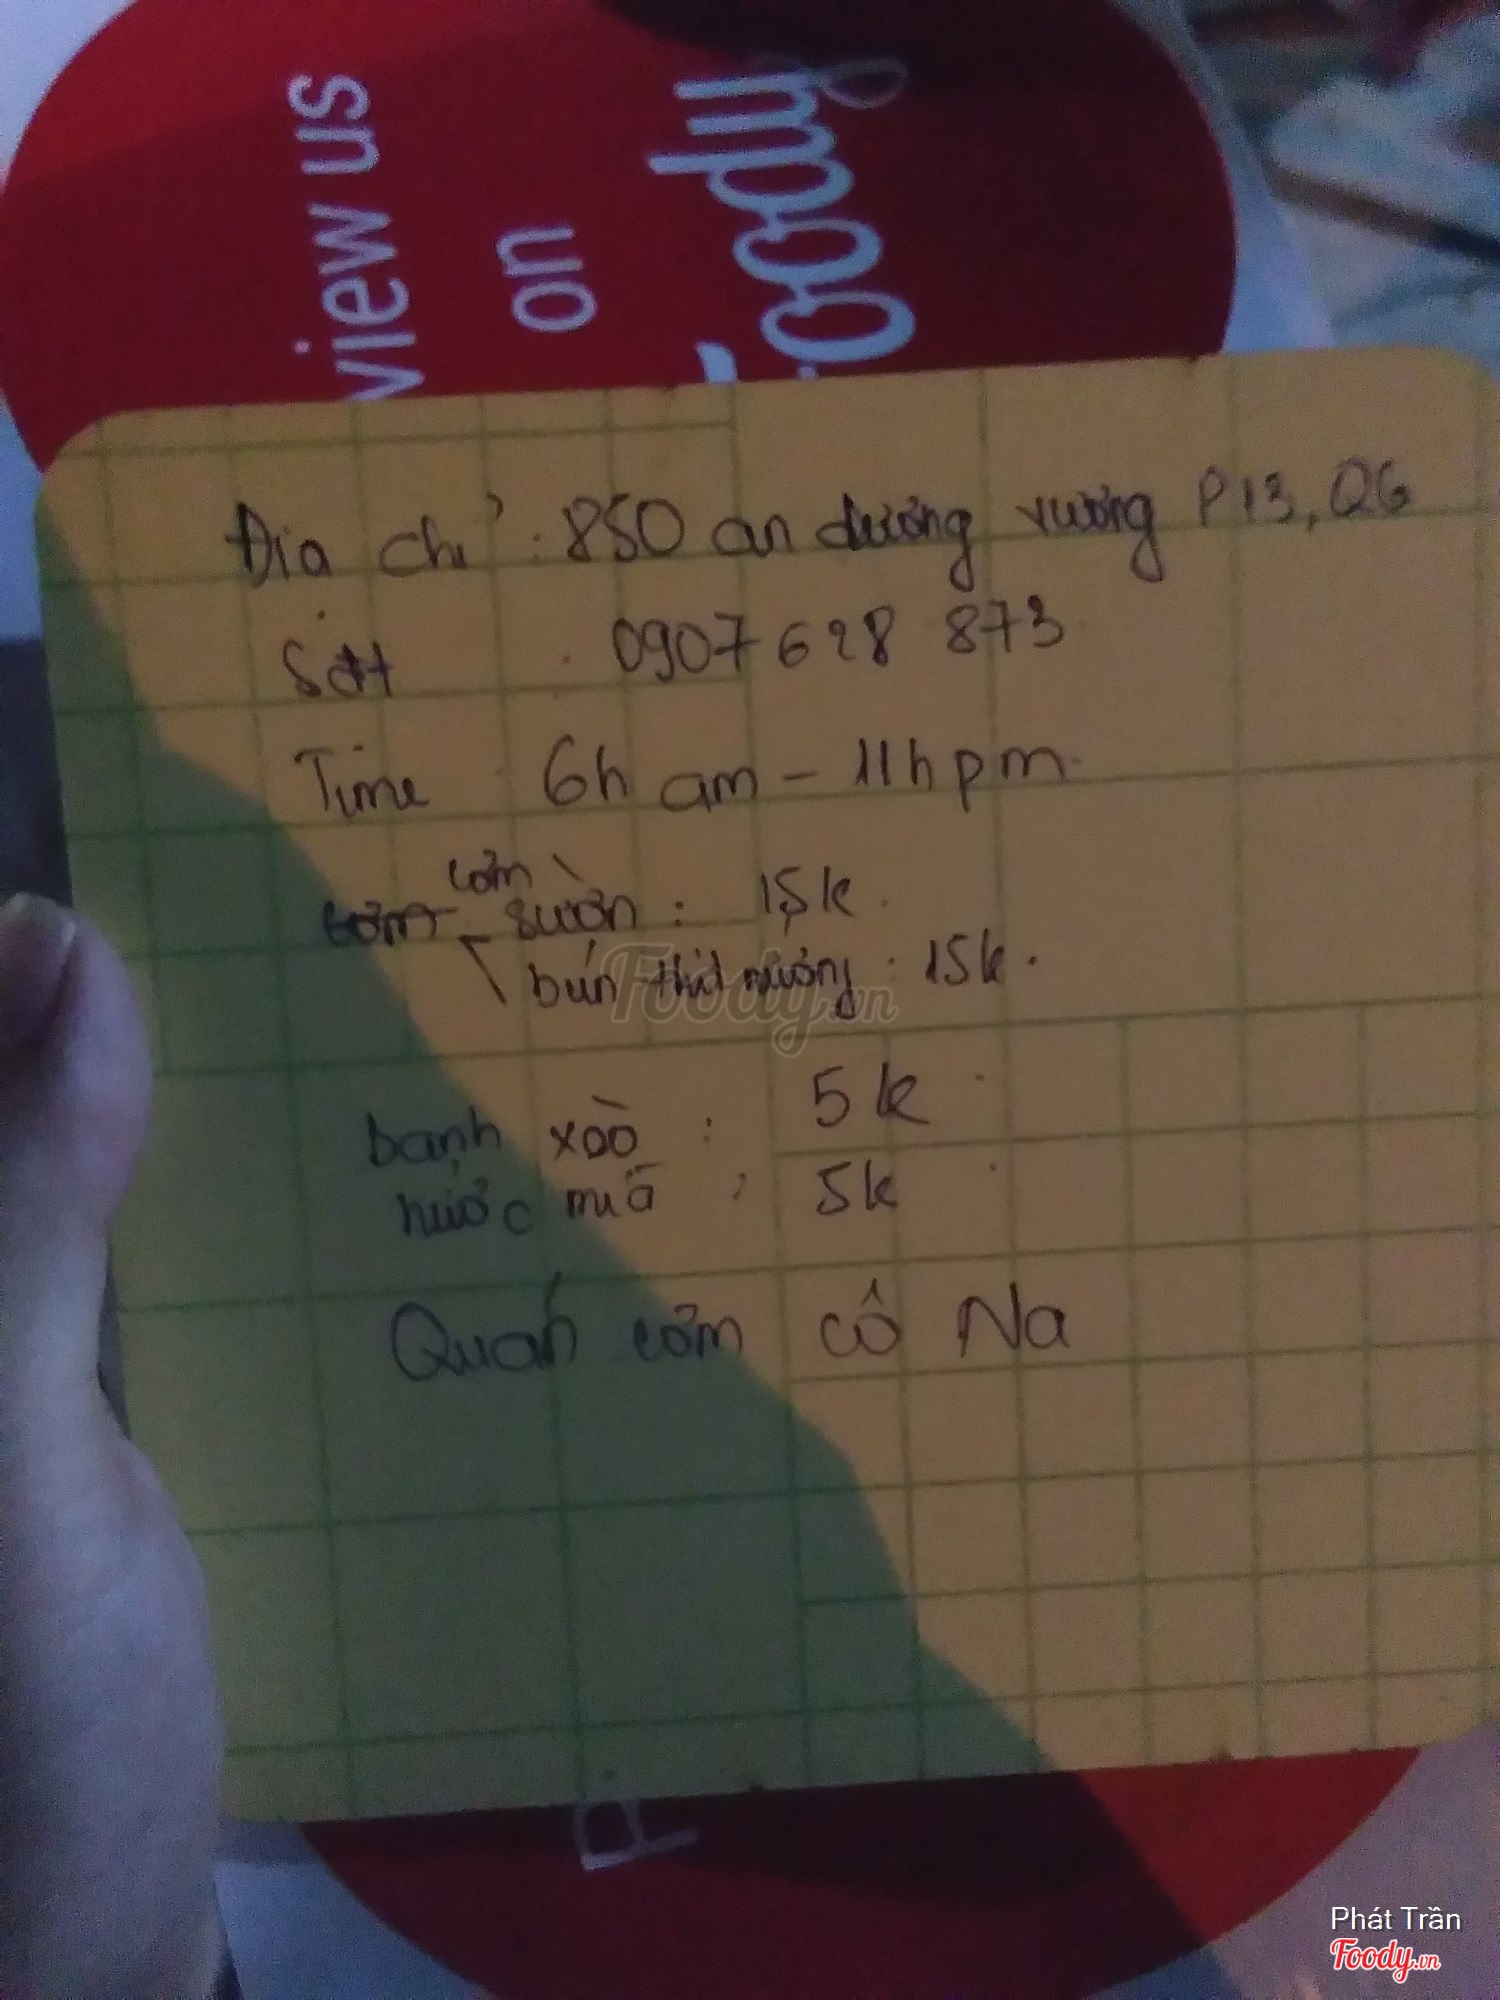 view us
on
Foody
Địa chỉ : 850 an dương vương P13, Q6
Sđt : 0907 628 873
Time : 6h am - 11h pm.
cơm
sườn : 15k.
bún thịt nướng : 15k.
banh xèo : 5k
nước mía : 5k
Quán cơm cô Na
Foody.vn
Phát Trần
Foody.vn